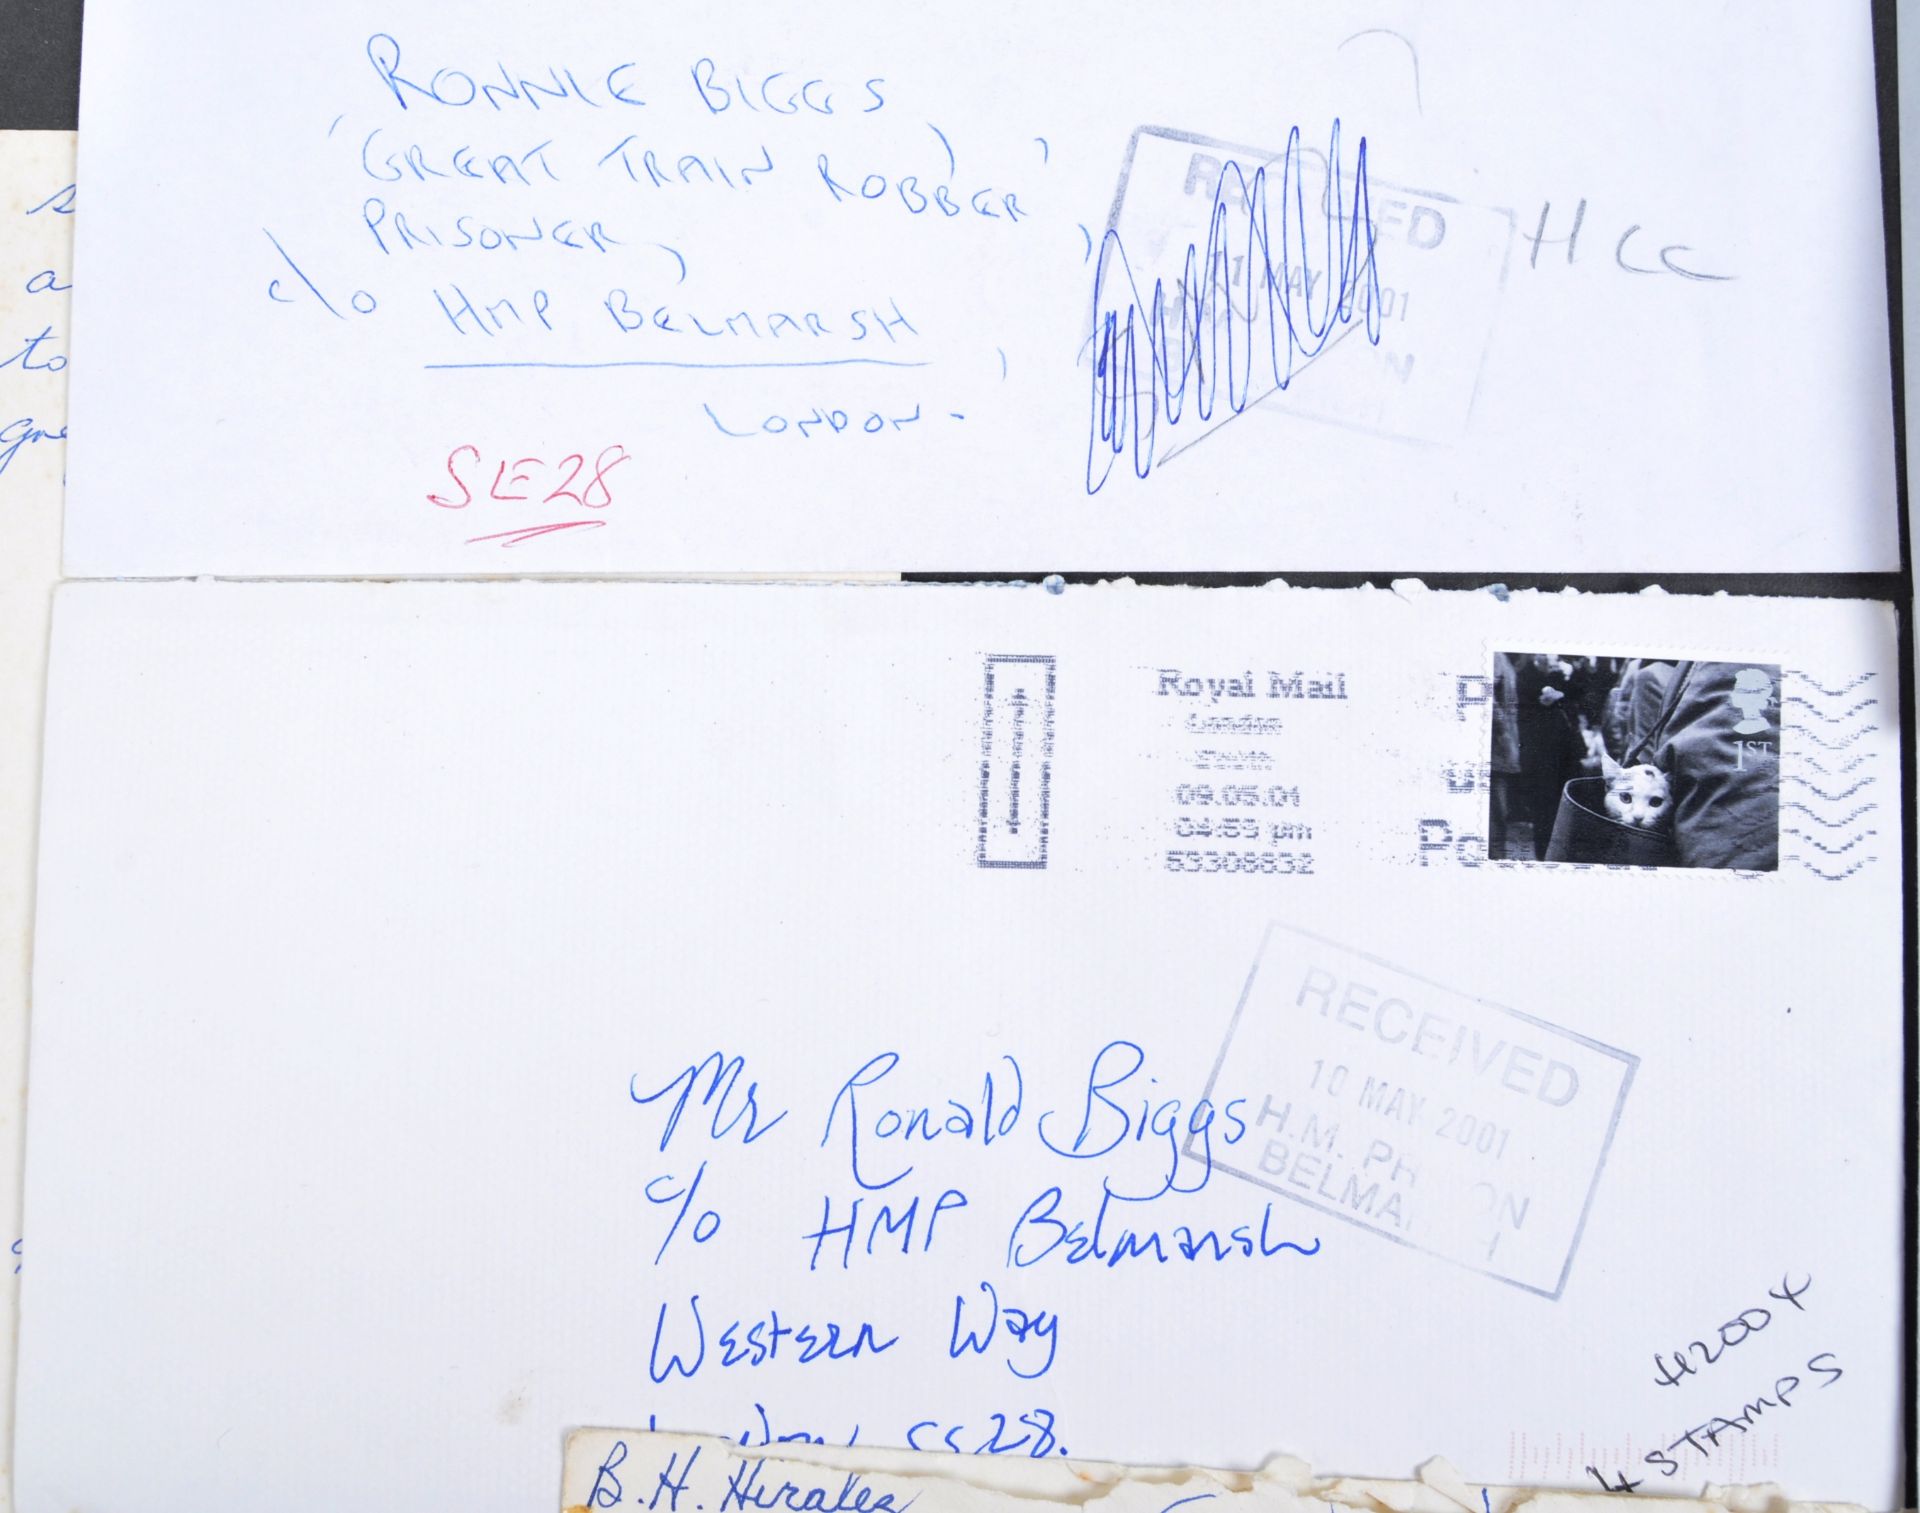 RONNIE BIGGS,
'GREAT TRAIN ROBBER',
PRISONER,
c/o HMP BELMARSH,
LONDON.
SE28
RECEIVED
11 MAY 2001
HCC
a
to
Royal Mail
London
South
09.05.01
04:53 pm
53308632
1ST
RECEIVED
10 MAY 2001
H.M. PR ON
BELMA H
Mr Ronald Biggs
c/o HMP Belmarsh
Western Way
London SE28.
4200X
4 STAMPS
B. H.